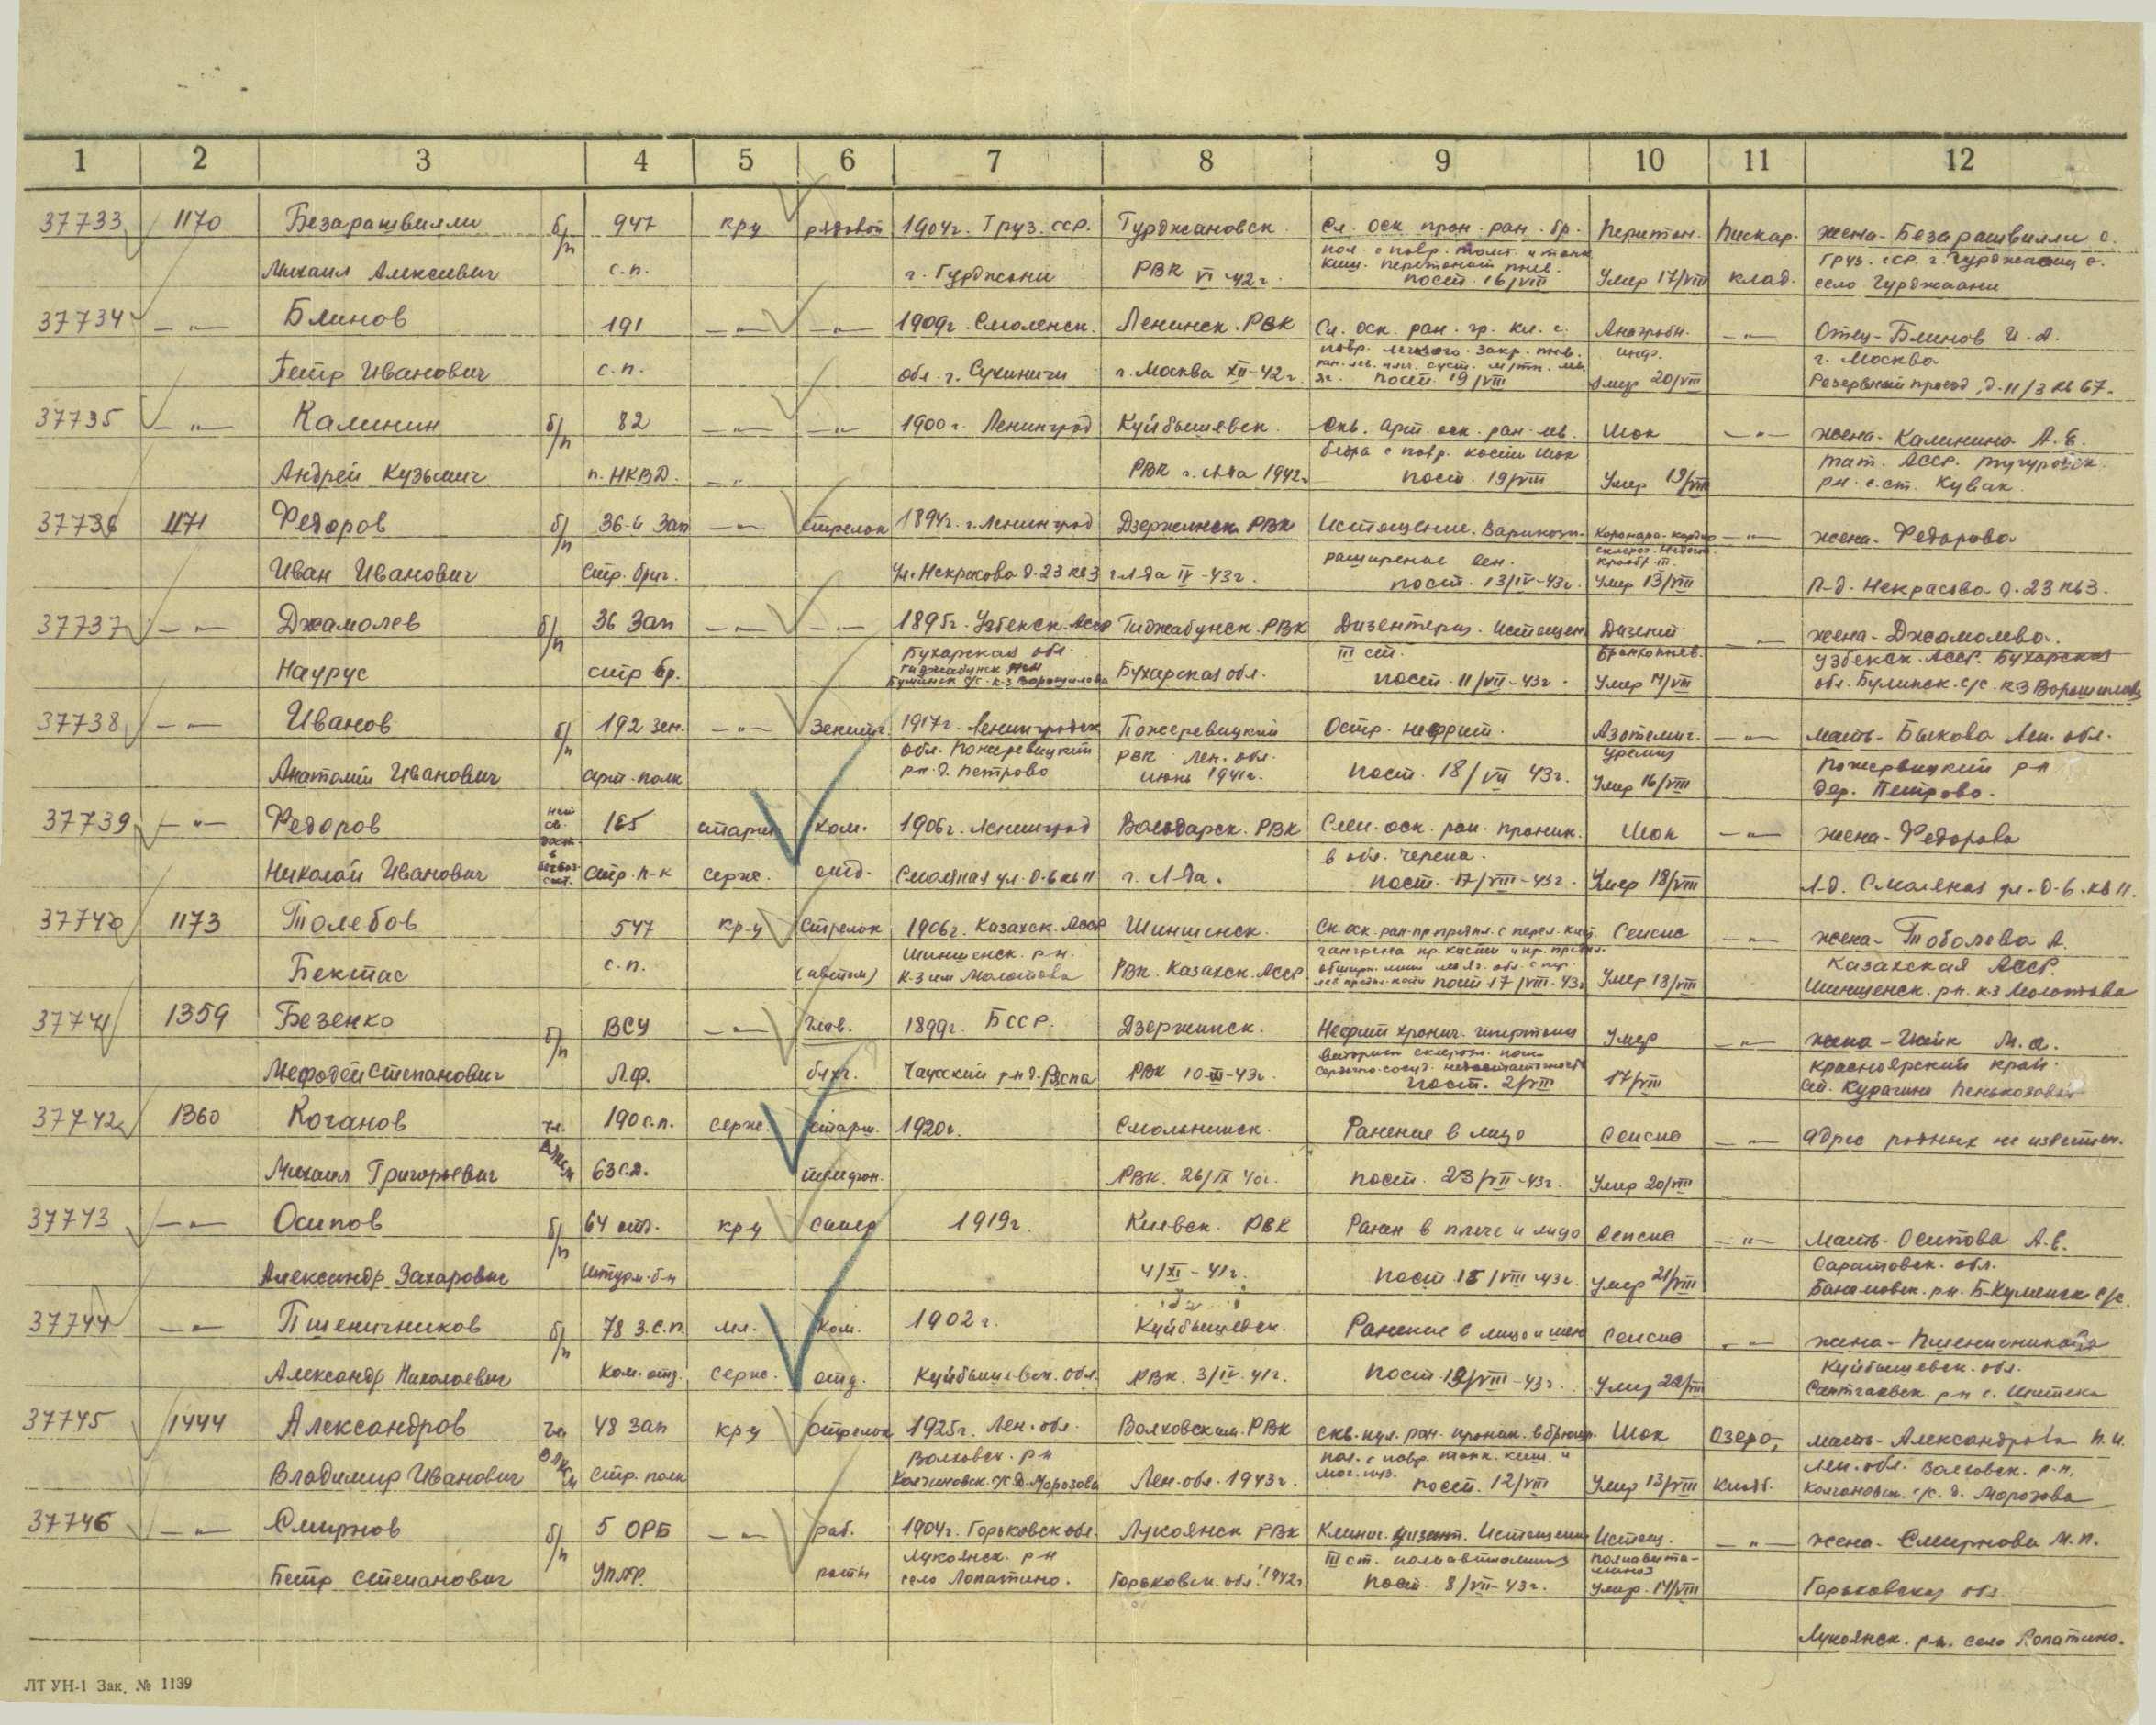 1 2 3 4 5 6 7 8 9 10 11 12
37733 1170 Безарашвилли б/п 947 кр-ц рядовой 1904г. Груз. сср. Гурджановск. Сл. оск. прон. ран. бр. Перитон. Пискар. жена - Безарашвилли с.
пол. с повр. толст. и тонк. Груз. сср. г. Гурджаани с.
Михаил Алексеевич с.п. г. Гурджани РВК VI-42г. киш. перетонит пнев. пост. 16/VIII Умер 17/VIII клад. село Гурджаани
37734 —"— Блинов 191 —"— —"— 1909г. Смоленск. Ленинск. РВК Сл. оск. ран. гр. кл. с. Анаэробн. —"— Отец - Блинов И. А.
повр. легкого. закр. пнв. инф. г. Москва
Петр Иванович с.п. обл. г. Сухиничи г. Москва XII-42г. пост. 19/VIII Умер 20/VIII Резервный проезд, д. 11/3 кв 67.
37735 —"— Калинин б/п 82 —"— —"— 1900г. Ленинград Куйбышевск. Скв. арт. оск. ран. лев. Шок —"— жена - Калинина А. Е.
бедра с повр. кости шок Тат. АССР.
Андрей Кузьмич п. НКВД. —"— РВК г. Л-да 1942г. пост. 19/VIII Умер 19/VIII р-н. с. ст. Кувак.
37736 1171 Федоров б/п 36-й Зап —"— стрелок 1894г. г. Ленинград Дзержинск. РВК Истощение. Варикозн. Коронаро-кардио —"— жена - Федорова
расширение вен. склероз.
Иван Иванович стр. бриг. ул. Некрасова д. 23 кв 3 г. Л-да IV-43г. пост. 13/IV-43г. Умер 13/VIII Л-д. Некрасова д. 23 кв 3.
37737 —"— Джамолев б/п 36 Зап —"— —"— 1895г. Узбекск. АССР Гиджабунск. РВК Дизентерия. истощен. Дизент. —"— жена - Джамолева.
Бухарская обл. III ст. Бронхопнев. Узбекск. АССР. Бухарская
Наурус стр бр. Гиджабунск р-н Бухарская обл. пост. 11/VII-43г. Умер 14/VIII обл. Булинск. с/с. к-з Ворошилова
Булинск с/с. к-з Ворошилова
37738 —"— Иванов б/п 192 зен. —"— Зенитч. 1917г. Ленинградск Пожеревицкий Остр. нефрит. Азотемич. —"— мать - Быкова Лен. обл.
обл. Пожеревицкий РВК Лен. обл. уремия Пожервицкий р-н
Анатолий Иванович арт. полк р-н. д. Петрово июнь 1941г. пост. 18/VII 43г. Умер 16/VIII дер. Петрово.
37739 —"— Федоров 165 старш. Ком. 1906г. Ленинград Володарск. РВК Слеп. оск. ран. проник. Шок —"— жена - Федорова
в обл. черепа.
Николай Иванович стр. п-к серж. отд. Смоляная ул. д. 6 кв 11 г. Л-да. пост. 17/VIII-43г. Умер 18/VIII Л-д. Смоляная ул. д. 6. кв 11.
37740 1173 Толебов 547 кр-ц Стрелок 1906г. Казахск. АССР Шиншенск. Ск. оск. ран. пр. предпл. с перел. кост. Сепсис —"— жена - Тоболева А.
Шиншенск. р-н. гангрена пр. кисти и пр. предпл. Казахская АССР.
Бектас с.п. (автом) к-з им Молотова РВК. Казахск. АССР. пост. 17/VIII. 43г Умер 18/VIII Шиншенск. р-н. к-з Молотова
37741 1359 Безенко б/п ВСУ —"— Глав. 1899г. БССР. Дзержинск. Нефрит хронич. гипертония Умер —"— жена - М. А.
Красноярский край.
Мефодей Степанович Л.ф. бухг. Чаусский р-н д. РВК 10-III-43г. Сердечно-сосуд. недостаточность пост. 2/VIII 17/VIII Курагино
37742 1360 Коганов чл. ВЛКСМ 190 с.п. серж. старш. 1920г. Смольнинск. Ранение в лицо Сепсис —"— адрес родных не известен.
Михаил Григорьевич 63 с.д. телефон. РВК. 26/IX 40г. пост. 23/VII-43г. Умер 20/VIII
37743 —"— Осипов б/п 64 отд. кр-ц сапер 1919г. Киевск. РВК Ранен в плечо и лицо Сепсис —"— мать - Осипова А. Е.
Саратовск. обл.
Александр Захарович штурм. б-н 4/XI-41г. пост. 15/VIII-43г. Умер 21/VIII р-н. с/с.
37744 —"— Пшеничников б/п 78 З.С.П. мл. ком. 1902г. Куйбышевск. Ранение в лицо и шею Сепсис —"— жена - Пшеничникова
Куйбышевск. обл.
Александр Николаевич Ком. отд. серж. отд. Куйбышевск. обл. РВК. 3/IV. 41г. пост. 19/VIII-43г. Умер 22/VIII р-н с.
37745 1444 Александров чл ВЛКСМ 48 Зап кр-ц стрелок 1925г. Лен. обл. Волховским. РВК скв. пул. ран. проник. в брюшн. Шок Озеро, мать - Александрова П. И.
Волховск. р-н пол. с повр. тонк. киш. и Лен. обл. Волховск. р-н.
Владимир Иванович стр. полк Колчановск. с/с. д. Морозово Лен. обл. 1943г. моч. пуз. пост. 12/VIII Умер 13/VIII кладб. Колчановск. с/с. д. Морозова
37746 —"— Смирнов б/п 5 ОРБ —"— раб. 1904г. Горьковск обл. Лукоянск РВК Клинич. дизент. Истощение Истощ. —"— жена - Смирнова М. П.
Лукоянск. р-н III ст. полиавитаминоз полиавита-
миноз
Петр Степанович роты село Лопатино. Горьковск. обл. 1942г. пост. 8/VII-43г. Умер. 14/VIII Горьковская обл.
Лукоянск. р-н. село Лопатино.
ЛТ УН-1 Зак. № 1139